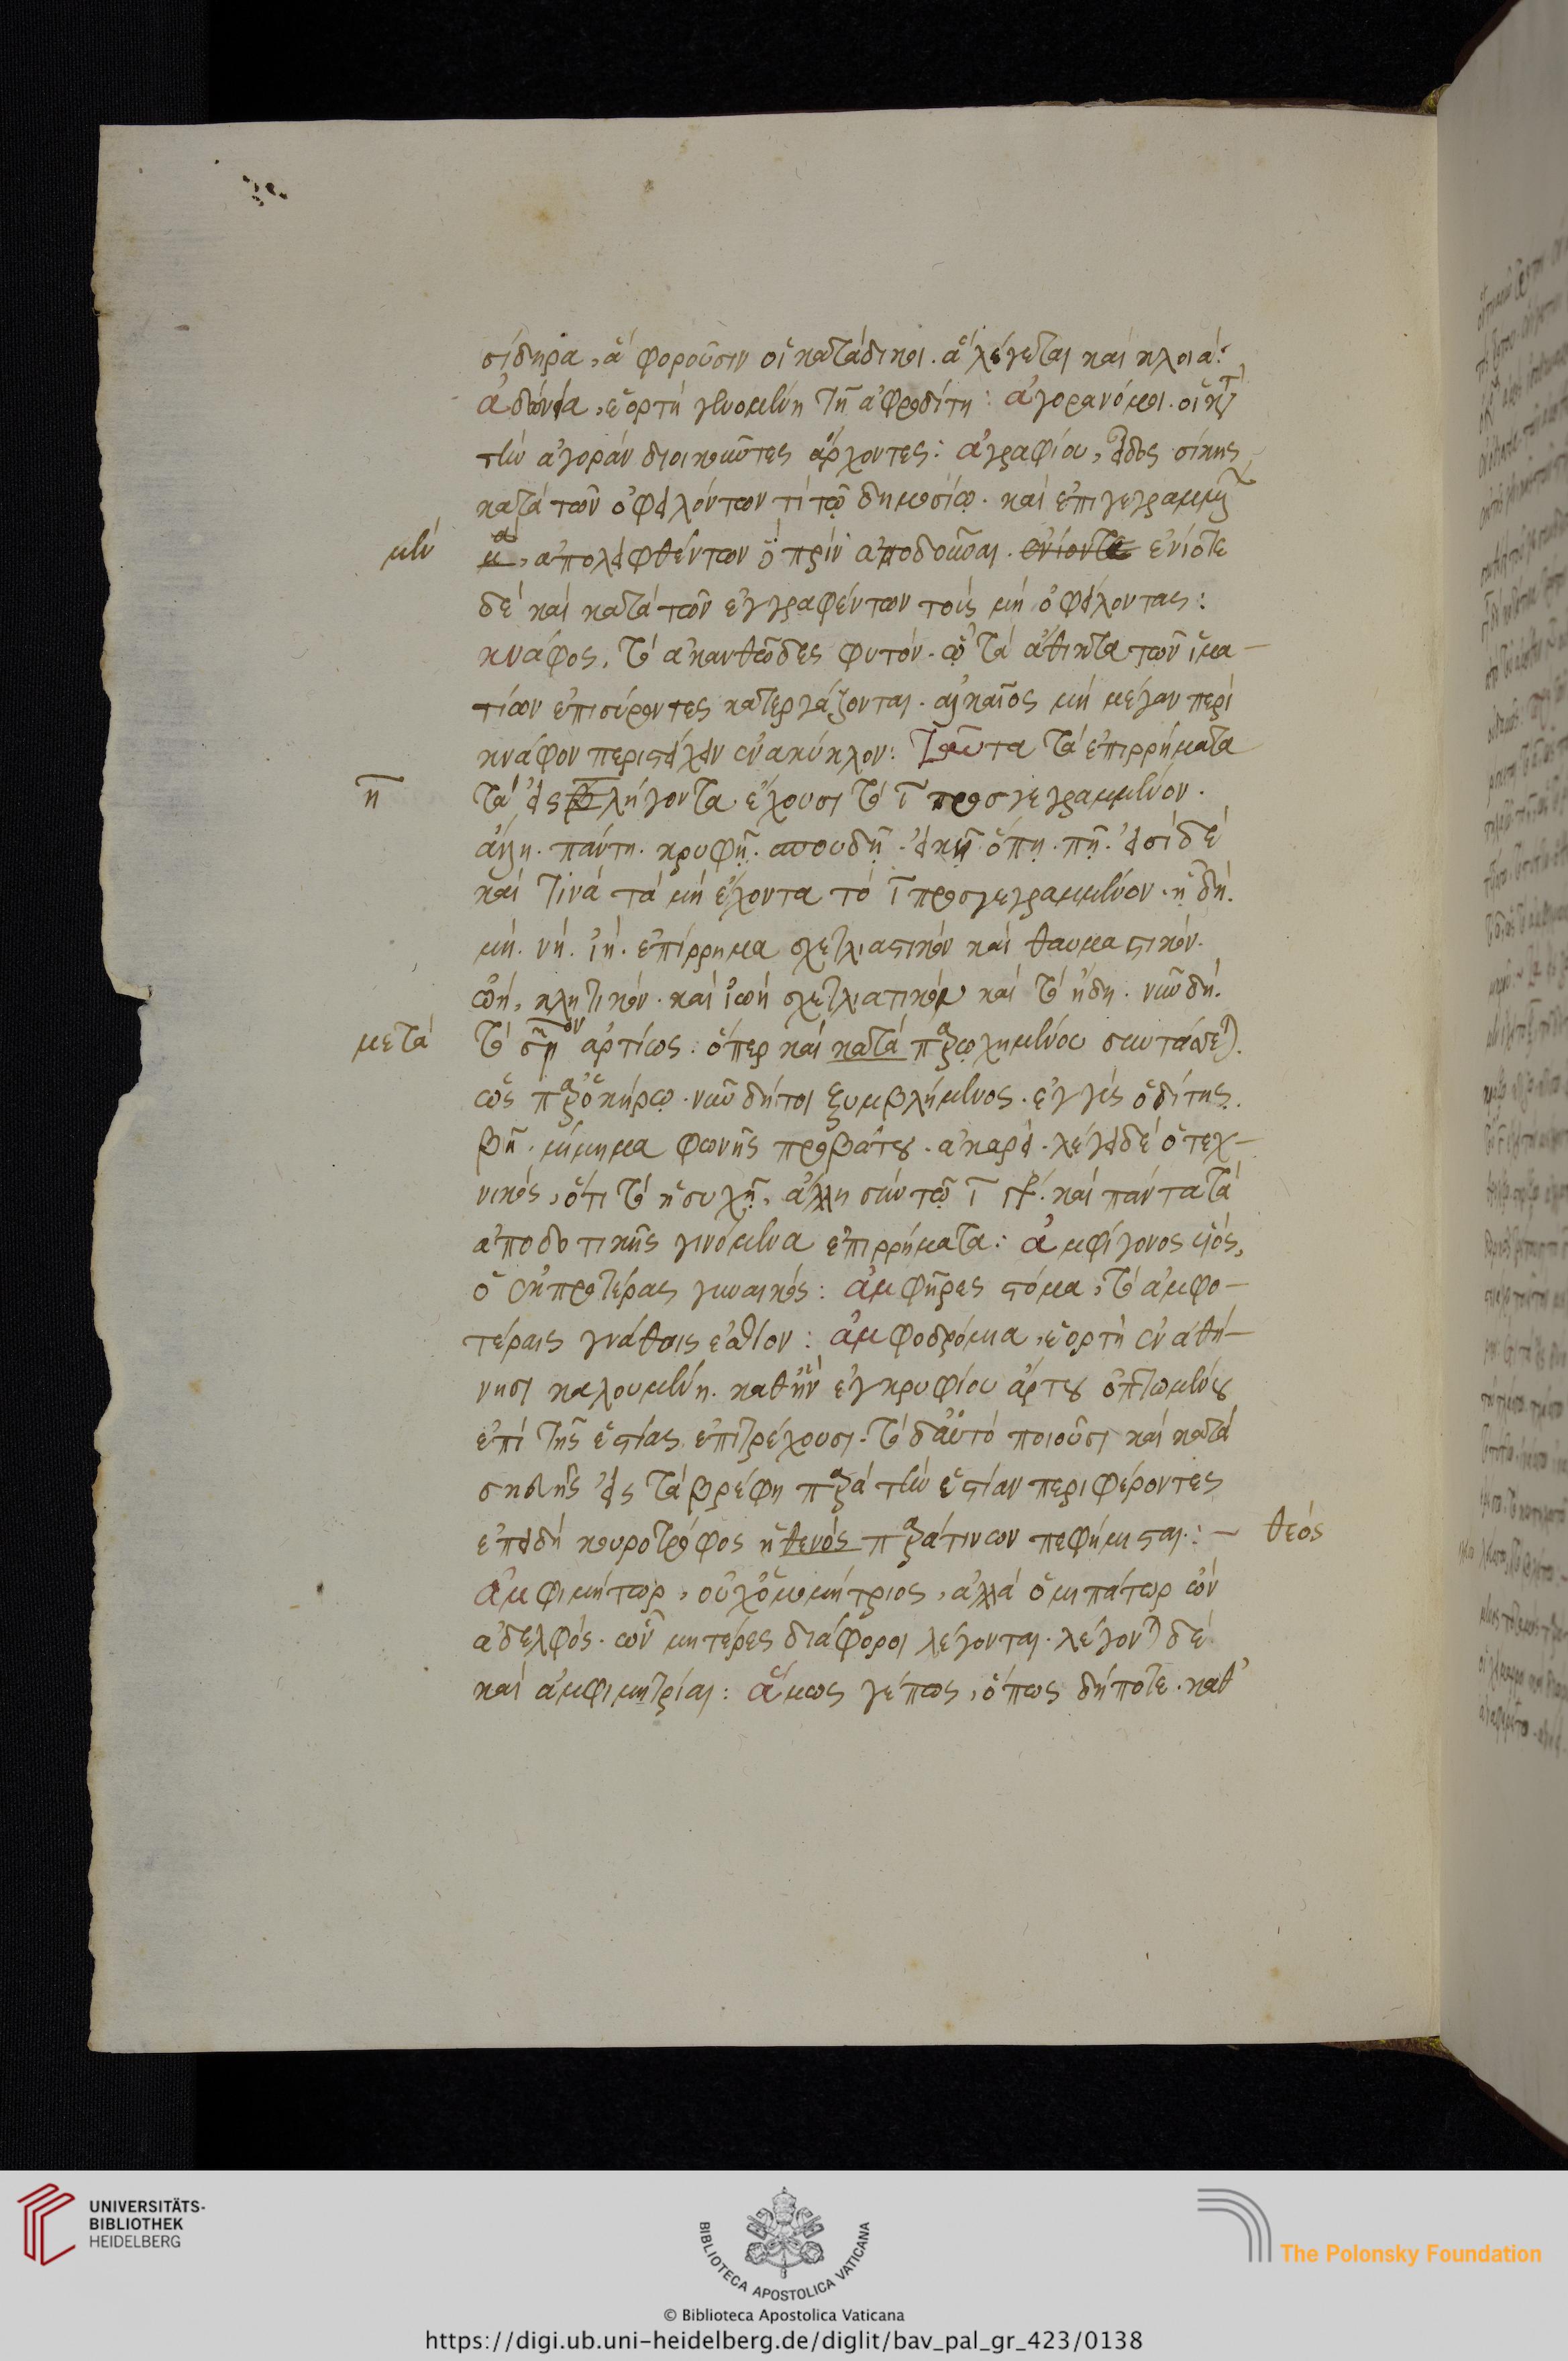 σίδηρα, ἃ φοροῦσιν οἱ κατάδικοι. ἃ λέγεται καὶ κλοιά:
ἀδώνια, ἑορτὴ γενομένη τῇ ἀφροδίτῃ: ἀγορανόμοι. οἱ κτ
τὴν ἀγορὰν διοικοῦντες ἄρχοντες: ἀγραφίου, εἶδος δίκης
κατὰ τῶν ὀφειλόντων τί τῷ δημοσίῳ. καὶ ἐπιγεγραμμ
μὲν
ἀπολειφθέντων ὃ πρὶν ἀποδοῦναι. ἐνίοντε ἐνίοτε
δὲ καὶ κατὰ τῶν ἐγγραφέντων τοὺς μὴ ὀφείλοντας:
κνάφος, τὸ ἀκανθῶδες φυτόν. ᾧ τὰ ἄθικτα τῶν ἱμα-
τίων ἐπισύροντες κατεργάζονται. αἰκαῖος μὴ μέγαν περὶ
κνάφον περιστείχειν ἐν ακύκλον: Ταῦτα τὰ ἐπιρρήματα
η
τὰ εἰς β λήγοντα ἔχουσι τὸ ι προσγεγραμμένον.
ἄλλῃ. πάντῃ. κρυφῇ. σπουδῇ. εἰκῇ. ὅπῃ. πῇ. εἰσὶ δὲ
καὶ τινὰ τὰ μὴ ἔχοντα τὸ ι προσγεγραμμένον. ἢ δή.
μή. νή. ἰή. ἐπίρρημα σχετλιαστικὸν καὶ θαυμαστικόν.
ὠή, κλητικόν. καὶ ἰωή σχετλιατικόν καὶ τὸ ἤδη. νῦν δή.
μετὰ
τὸ σημ ον ἀρτίως: ὅπερ καὶ κατὰ παρῳχημένου συντάσσεται.
ὡς παρ' ὁμήρῳ. νῦν δήτοι ξυμβλήμενος. ἐγγὺς ὁδίτης.
βῆ. μίμημα φωνῆς προβάτου. ἀκαρεί. λέγει δὲ ὁ τεχ-
νικός, ὅτι τὸ ἡσυχῇ, ἄλλη σὺν τῷ ι γρ. καὶ πάντα τὰ
ἀπὸ δοτικῆς γινόμενα ἐπιρρήματα: ἀμφίγονος υἱός,
ὁ ἐκ προτέρας γυναικός: ἀμφῆρες στόμα, τὸ ἀμφο-
τέραις γνάθοις ἐσθίον: ἀμφοδρόμια, ἑορτὴ ἐν ἀθή-
νησι καλουμένη. καθ' ἣν ἐγκρυφίου ἄρτου ὀπτωμένου
ἐπὶ τῆς ἑστίας ἐπιτρέχουσι. τὸ δ' αὐτὸ ποιοῦσι καὶ κατὰ
εἰς τὰ βρέφη παρὰ τὴν ἑστίαν περιφέροντες
ἐπειδὴ κουροτρόφος ἡ θενὸς παρά τινων πεφήμισται: – θεός
ἀμφιμήτωρ, οὐχ ὁμομήτριος, ἀλλὰ ὁμηπάτωρ ὢν
ἀδελφός. ὧν μητέρες διάφοροι λέγονται. λέγονται δὲ
καὶ ἀμφιμητρίαι: ἅμως γέπως, ὅπως δήποτε. καθ'
UNIVERSITÄTS-
BIBLIOTHEK
HEIDELBERG
BIBLIOTECA APOSTOLICA VATICANA
The Polonsky Foundation
© Biblioteca Apostolica Vaticana
https://digi.ub.uni-heidelberg.de/diglit/bav_pal_gr_423/0138